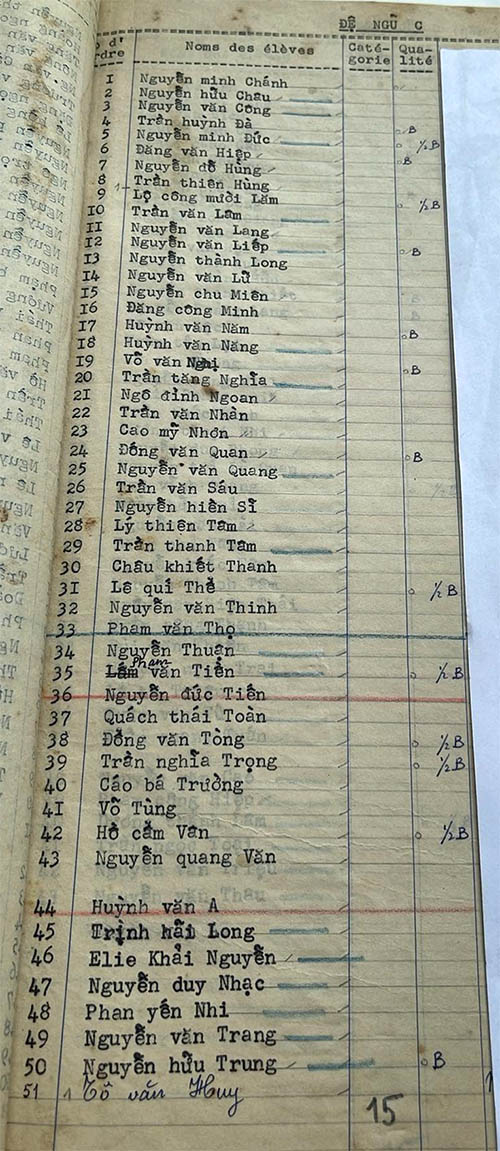 ĐỆ NGŨ C
d'Ordre Noms des élèves Catégorie Qualité
1 Nguyễn minh Chánh
2 Nguyễn hữu Châu
3 Nguyễn văn Công
4 Trần huỳnh Đà
5 Nguyễn minh Đức B
6 Đặng văn Hiệp ½B
7 Nguyễn đỗ Hùng B
8 Trần thiên Hùng
9 Lộ công mười Lăm
10 Trần văn Lâm ½B
11 Nguyễn văn Lang
12 Nguyễn văn Liếp
13 Nguyễn thành Long B
14 Nguyễn văn Lữ
15 Nguyễn chu Miên
16 Đặng công Minh
17 Huỳnh văn Năm
18 Huỳnh văn Năng B
19 Võ văn Nghị
20 Trần tăng Nghĩa B
21 Ngô đình Ngoan
22 Trần văn Nhàn
23 Cao mỹ Nhơn
24 Đống văn Quan B
25 Nguyễn văn Quang
26 Trần văn Sáu
27 Nguyễn hiền Sĩ
28 Lý thiện Tâm
29 Trần thanh Tâm
30 Châu khiết Thanh
31 Lê qui Thể ½B
32 Nguyễn văn Thinh
33 Phạm văn Thọ
34 Nguyễn Thuận
35 Lâm Phạm văn Tiển ½B
36 Nguyễn đức Tiến
37 Quách thái Toàn
38 Đổng văn Tòng ½B
39 Trần nghĩa Trọng ½B
40 Cáo bá Trường
41 Võ Tùng
42 Hồ cẩm Vân ½B
43 Nguyễn quang Văn
44 Huỳnh văn A
45 Trịnh hải Long
46 Elie Khải Nguyễn
47 Nguyễn duy Nhạc
48 Phan yến Nhi
49 Nguyễn văn Trang
50 Nguyễn hữu Trung B
51 Tô văn Huy
15